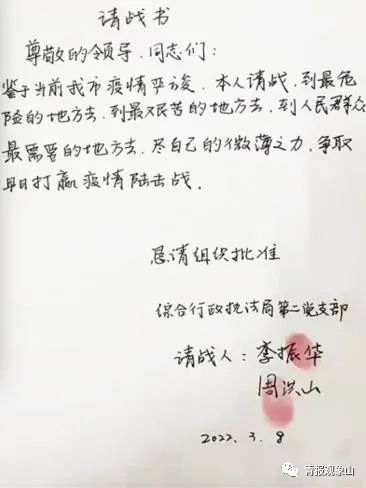 请战书
尊敬的领导、同志们：
鉴于当前我市疫情严峻，本人请战，到最危
险的地方去，到最艰苦的地方去，到人民群众
最需要的地方去，尽自己的微薄之力，争取
早日打赢疫情阻击战。
恳请组织批准
综合行政执法局第二党支部
请战人：李振华
周洪山
2022.3.8
青报观象山